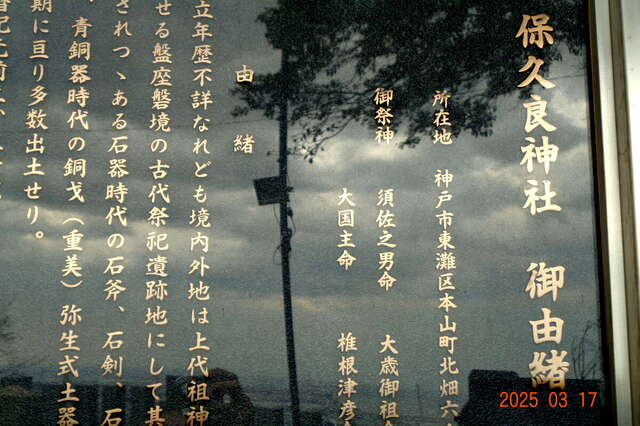 保久良神社 御由緒
所在地 神戸市東灘区本山町北畑六
御祭神 須佐之男命 大歳御祖命
大国主命 椎根津彦命
由緒
立年歴不詳なれども境内外地は上代祖神
せる盤座磐境の古代祭祀遺跡地にして其
されつゝある石器時代の石斧、石剣、石
、青銅器時代の銅戈（重美）弥生式土器
期に亘り多数出土せり。
2025 03 17